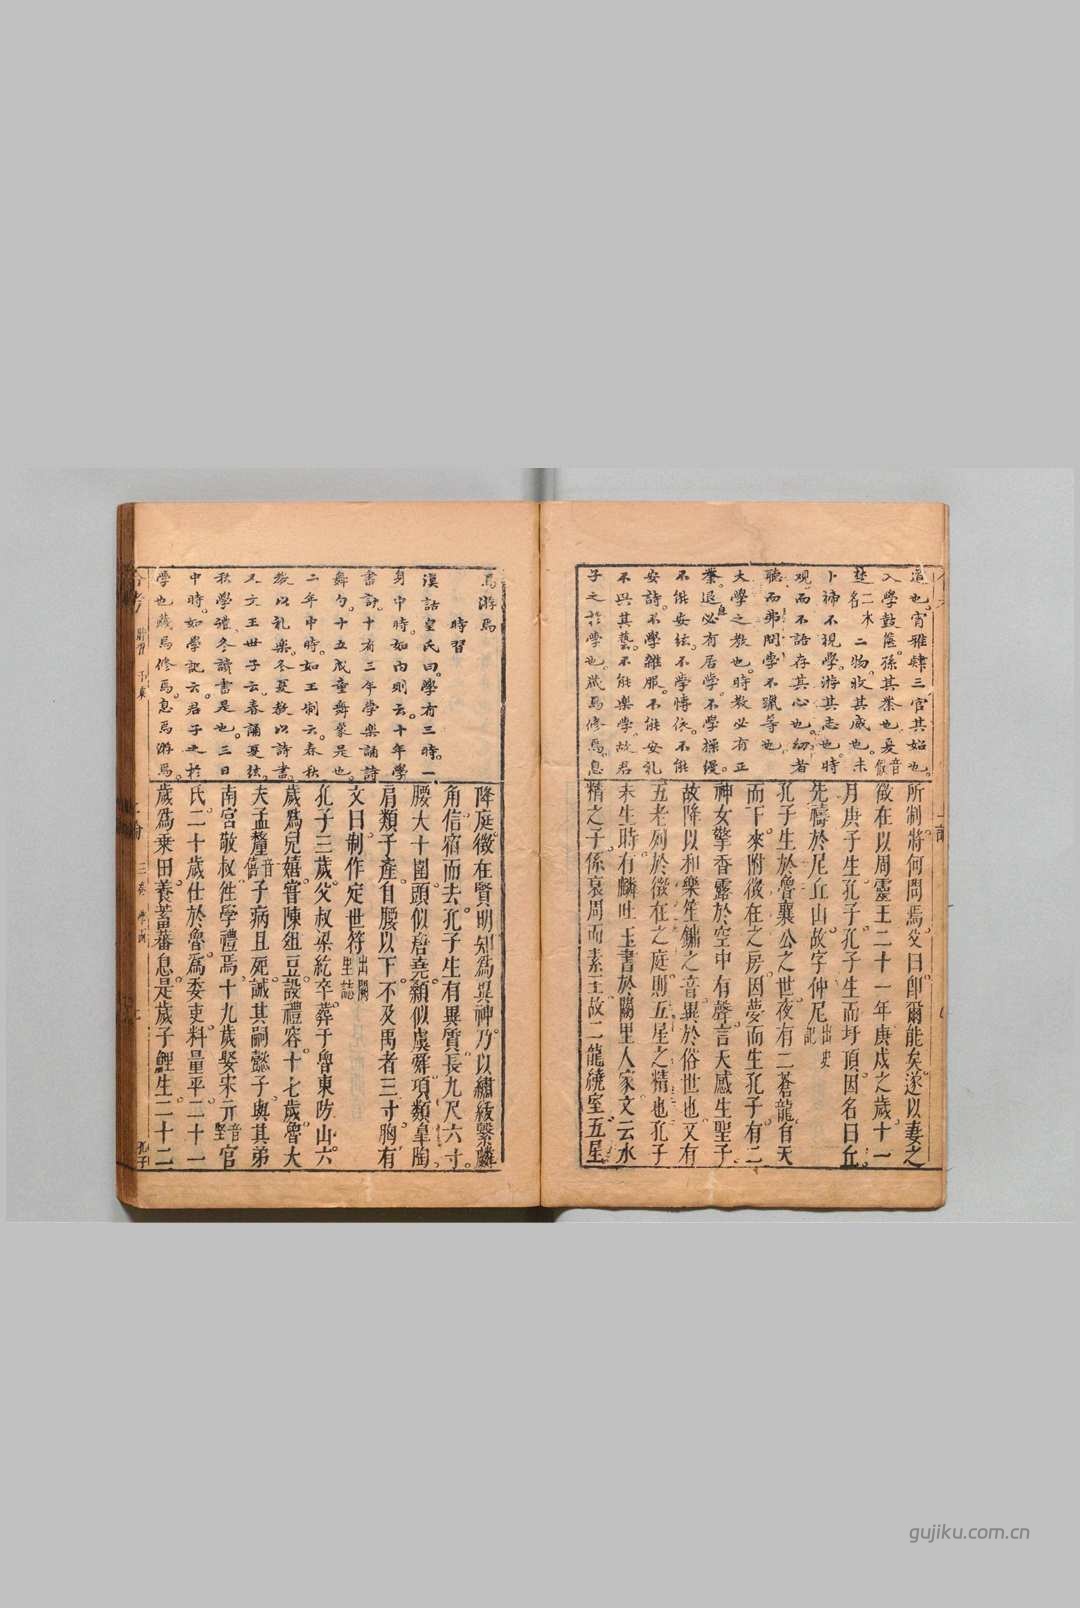 道也宵雅肄三官其始也
入學鼓篋孫其業也夏音賈
楚二木名二物收其威也未
卜禘不視學游其志也時
觀而不語存其心也幼者
聽而弗問學不躐等也
大學之教也時教必有正
業退息必有居學不學操縵
不能安弦不學博依不能
安詩不學雜服不能安礼
不興其藝不能樂學故君
子之於學也藏焉修焉息
所制將何問焉父曰卽爾能矣遂以妻之
徵在以周靈王二十一年庚戌之歲十一
月庚子生孔子孔子生而圩頂因名曰丘
先禱於尼丘山故字仲尼出史記
孔子生於魯襄公之世夜有二蒼龍自天
而下來附徵在之房因夢而生孔子有二
神女擎香露於空中有聲言天感生聖子
故降以和樂笙鏞之音異於俗世也又有
五老列於徵在之庭則五星之精也孔子
未生時有麟吐玉書於闕里人家文云水
精之子係衰周而素王故二龍繞室五星
焉游焉
時習
漢詁皇氏曰學有三時一
身中時如內則云十年學
書計十有三年學樂誦詩
舞勺十五成童舞象是也
二年中時如王制云春秋
教以礼樂冬夏教以詩書
又文王世子云春誦夏弦
秋學禮冬讀書是也三日
中時如學記云君子之於
學也藏焉修焉息焉游焉
降庭徵在賢明知為異神乃以繡紱繫麟
角信宿而去孔子生有異質長九尺六寸
腰大十圍頭似唐堯顙似虞舜項類皐陶
肩類子產自腰以下不及禹者三寸胸有
文曰制作定世符出闕里誌
孔子三歲父叔梁紇卒葬于魯東防山六
歲為兒嬉嘗陳俎豆設禮容十七歲魯大
夫孟釐音僖子病且死誡其嗣懿子與其弟
南宮敬叔徃學禮焉十九歲娶宋亓音堅官
氏二十歲仕於魯為委吏料量平二十一
歲為乘田養蓄蕃息是歲子鯉生二十二
三卷
孔子